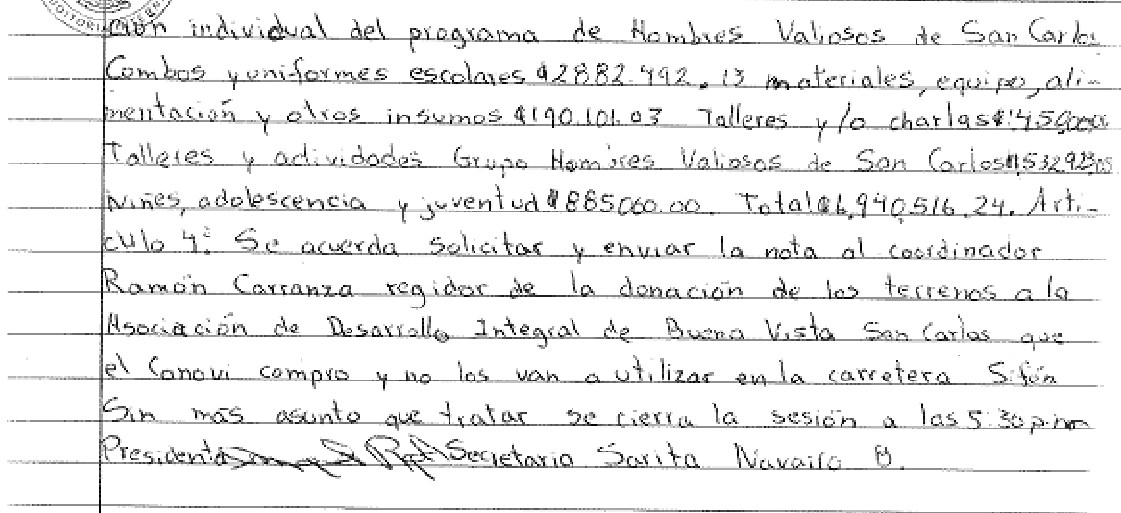 ción individual del programa de Hombres Valiosos de San Carlos
Combos y uniformes escolares ¢2882.492.13 materiales, equipo, ali-
mentación y otros insumos ¢190.101.03 Talleres y/o charlas
Talleres y actividades Grupo Hombres Valiosos de San Carlos
Niñes, adolescencia y juventud ¢885000.00. Total ¢6,940,516.24. Artí-
culo 4: Se acuerda solicitar y enviar la nota al coordinador
Ramón Carranza regidor de la donación de los terrenos a la
Asociación de Desarrollo Integral de Buena Vista San Carlos que
el Conavi compro y no los van a utilizar en la carretera Sifón
Sin más asunto que tratar se cierra la sesión a las 5:30 p.m
Presidente Secretario Sarita Navarro B.